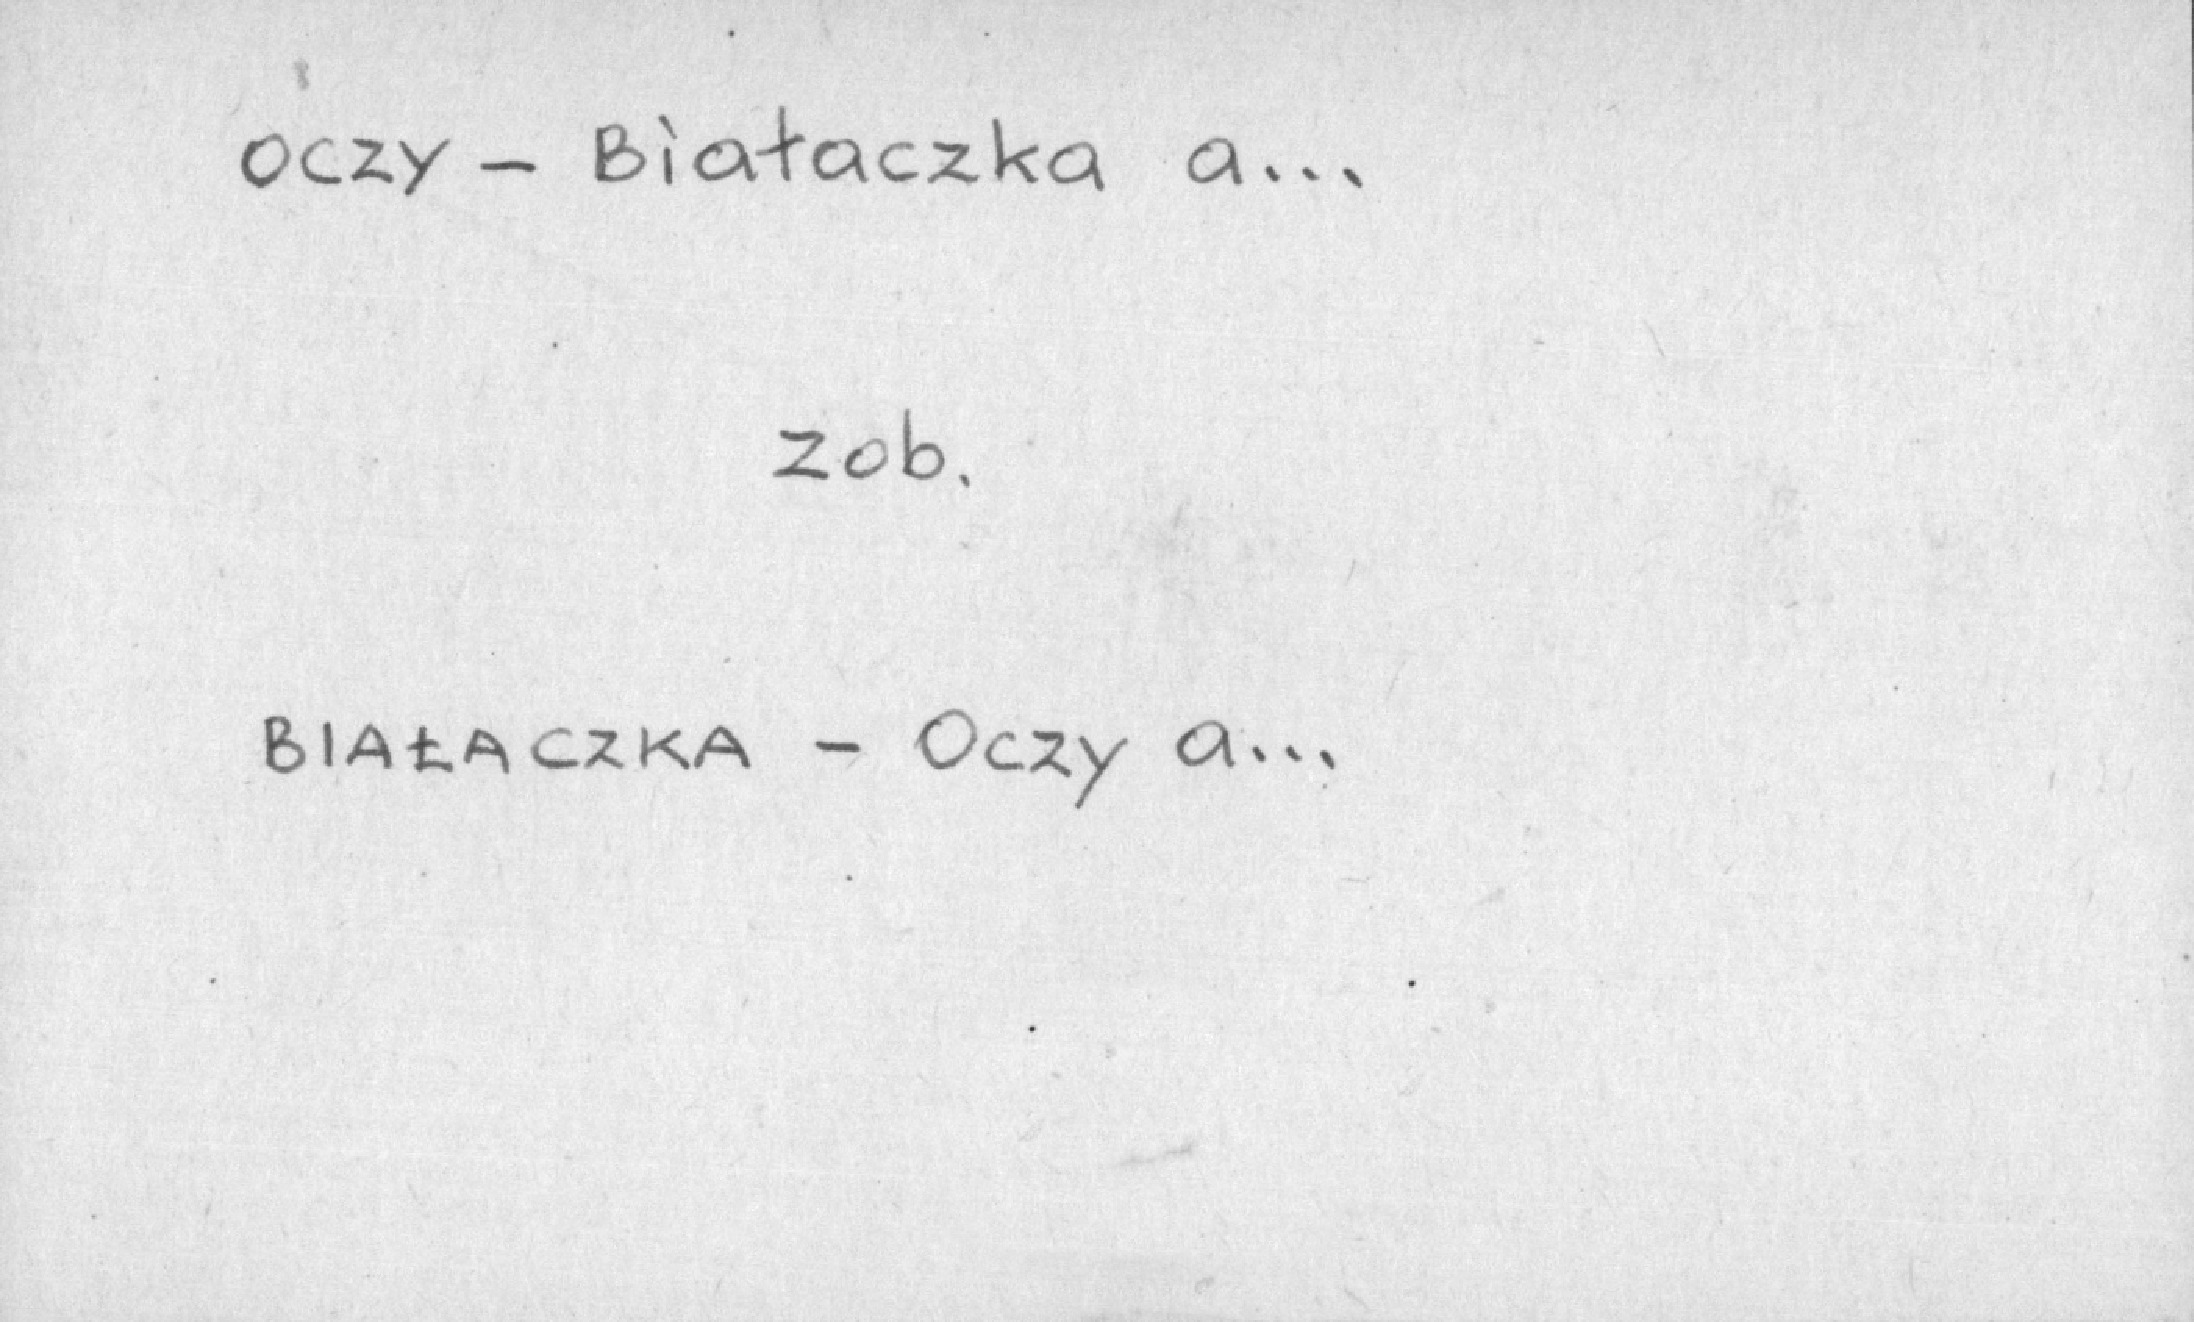 OCZY - Białaczka a...
zob.
BIAŁACZKA - Oczy a...